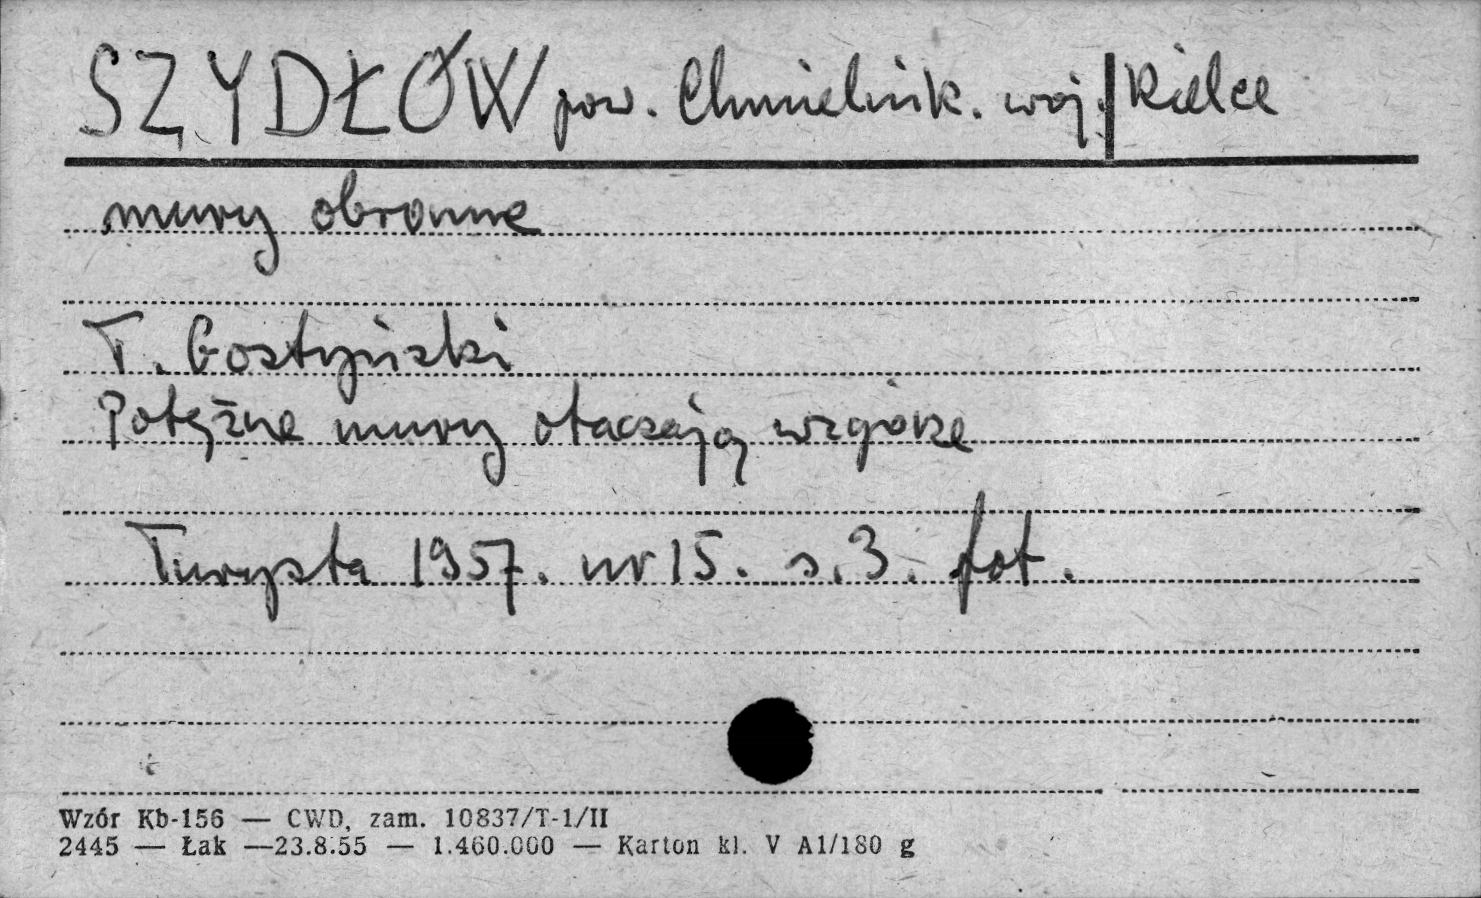 SZYDŁÓW pow. Chmielnik. woj. Kielce
mury obronne
T. Gostyński
Potężne mury otaczają wzgórze
Turysta 1957. nr 15. s. 3. fot.
Wzór Kb-156 — CWD, zam. 10837/T-1/II
2445 — Łak —23.8.55 — 1.460.000 — Karton kl. V A1/180 g